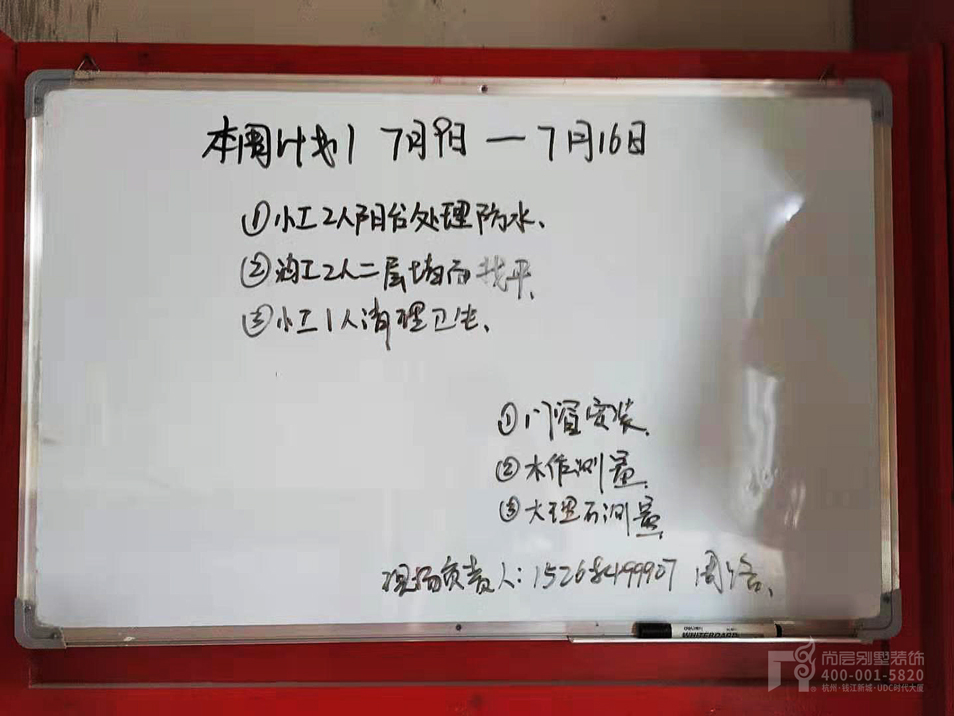 本周计划 7月9日 — 7月16日
① 小工2人阳台处理防水、
② 油工2人二层墙面找平、
③ 小工1人清理卫生、
① 门窗安装、
② 木作测量、
③ 大理石测量、
现场负责人: 周
WHITEBOARD
尚层别墅装饰
400-001-5820
杭州·钱江新城·UDC时代大厦